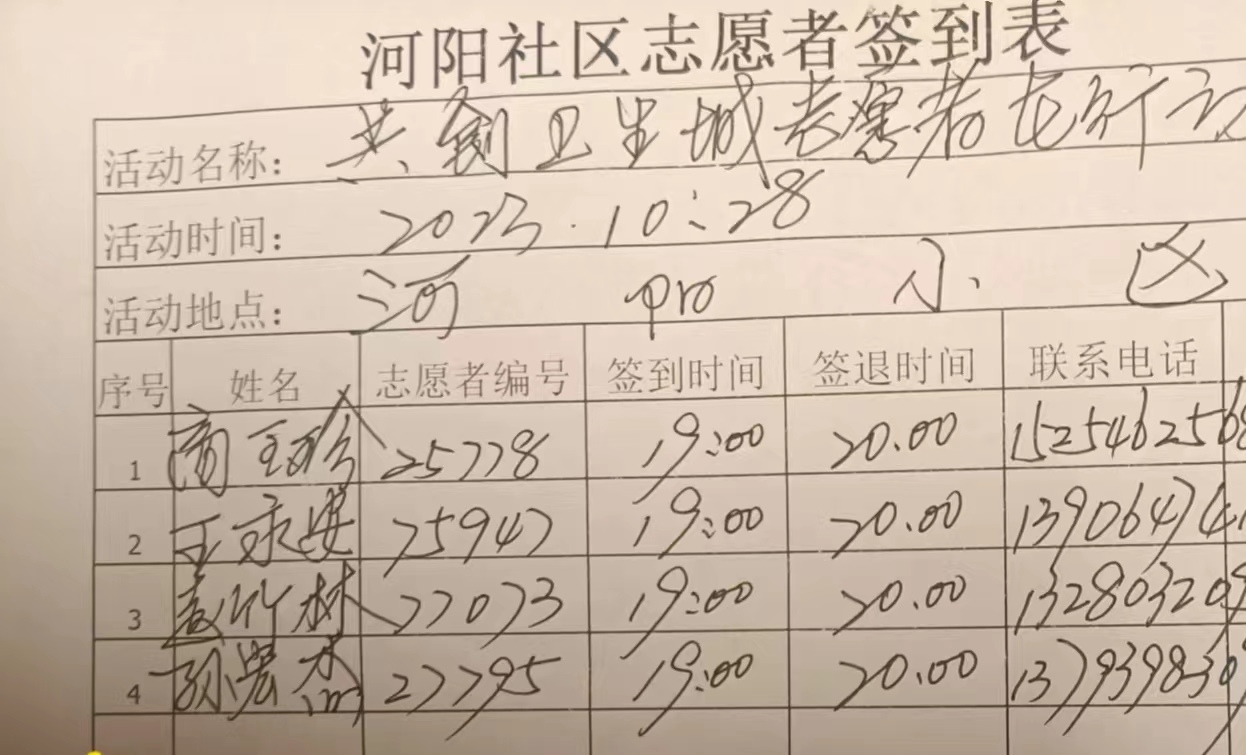 河阳社区志愿者签到表
活动名称: 共创卫生城
活动时间: 2023.10:28
活动地点: 河 小 区
序号 姓名 志愿者编号 签到时间 签退时间 联系电话
1 25778 19:00 20.00 1525462568
2 王永 25947 19:00 20.00 139064741
3 林 27073 19:00 20.00 132803209
4 孙 杰 27795 19:00 20.00 137939830